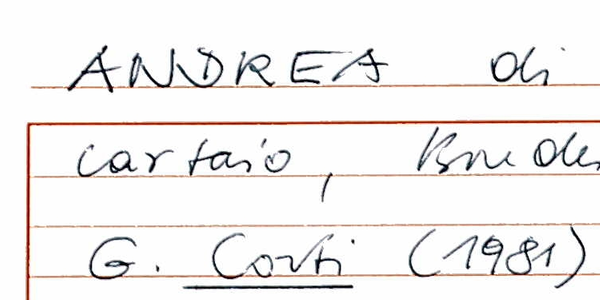 ANDREA di
cartaio,
G. Corti (1981)